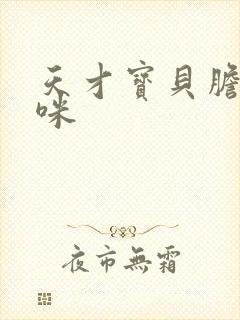 天才寶貝膽
咪
夜市無霜